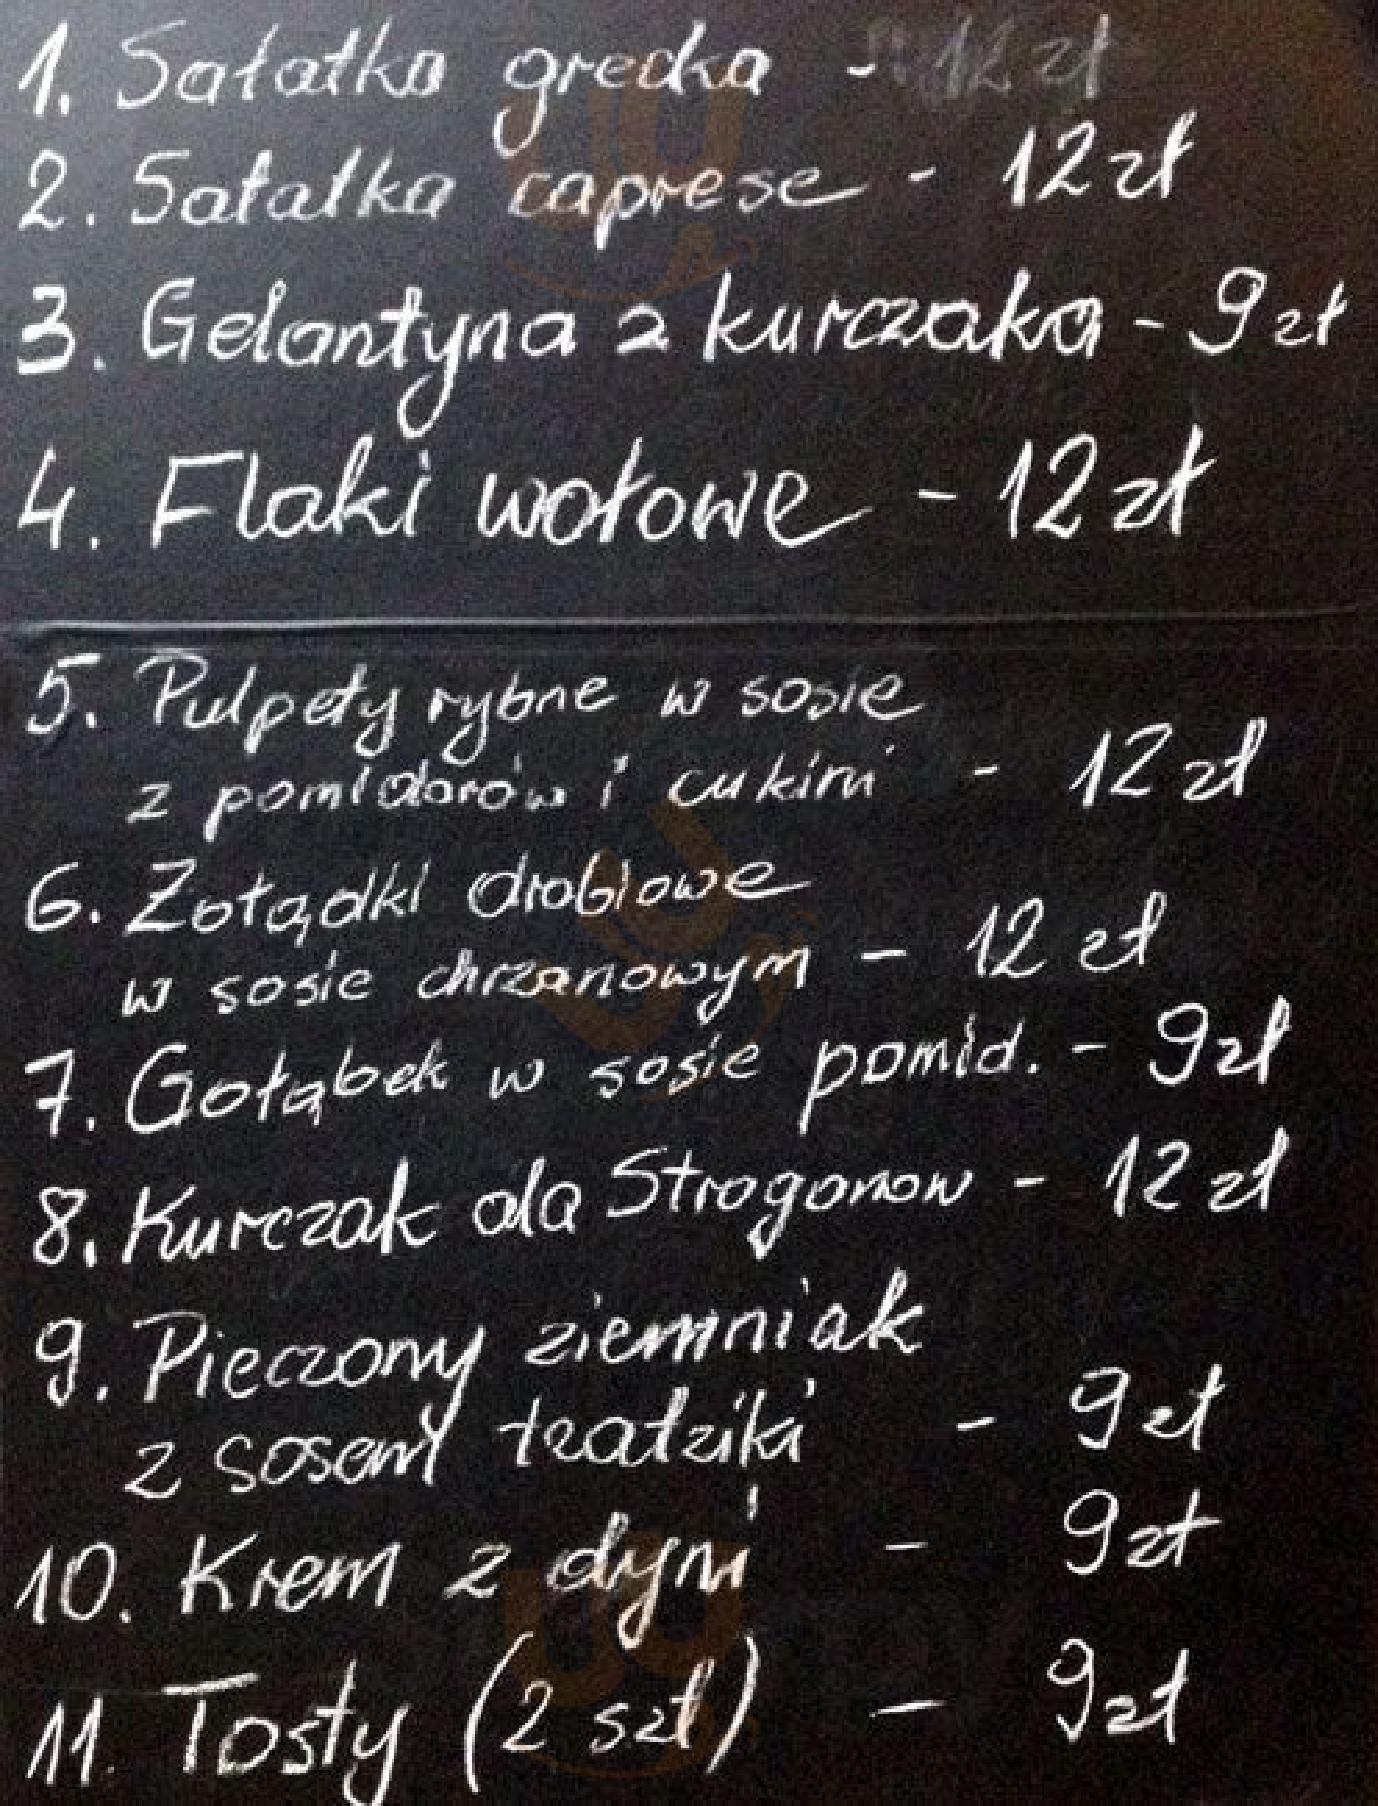 1. Sałatka grecka - 12 zł
2. Sałatka caprese - 12 zł
3. Gelantyna z kurczaka - 9 zł
4. Flaki wołowe - 12 zł
5. Pulpety rybne w sosie
z pomidorów i cukini - 12 zł
6. Żołądki drobiowe
w sosie chrzanowym - 12 zł
7. Gołąbek w sosie pomid. - 9 zł
8. Kurczak ala Strogonow - 12 zł
9. Pieczony ziemniak
z sosem tzatziki - 9 zł
10. Krem z dyni - 9 zł
11. Tosty (2 szt) - 9 zł